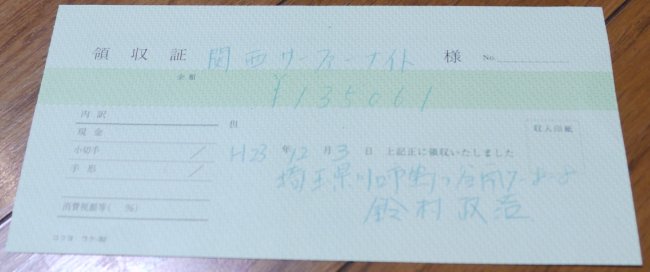 領収証 関西サーファーナイト 様 No.
金額
¥135061
内訳
但
現金
収入印紙
小切手 /
H23年12月3日 上記正に領収いたしました
手形 /
埼玉県川口市 7-8-8
消費税額等( %)
鈴村政浩
コクヨ ウケ-